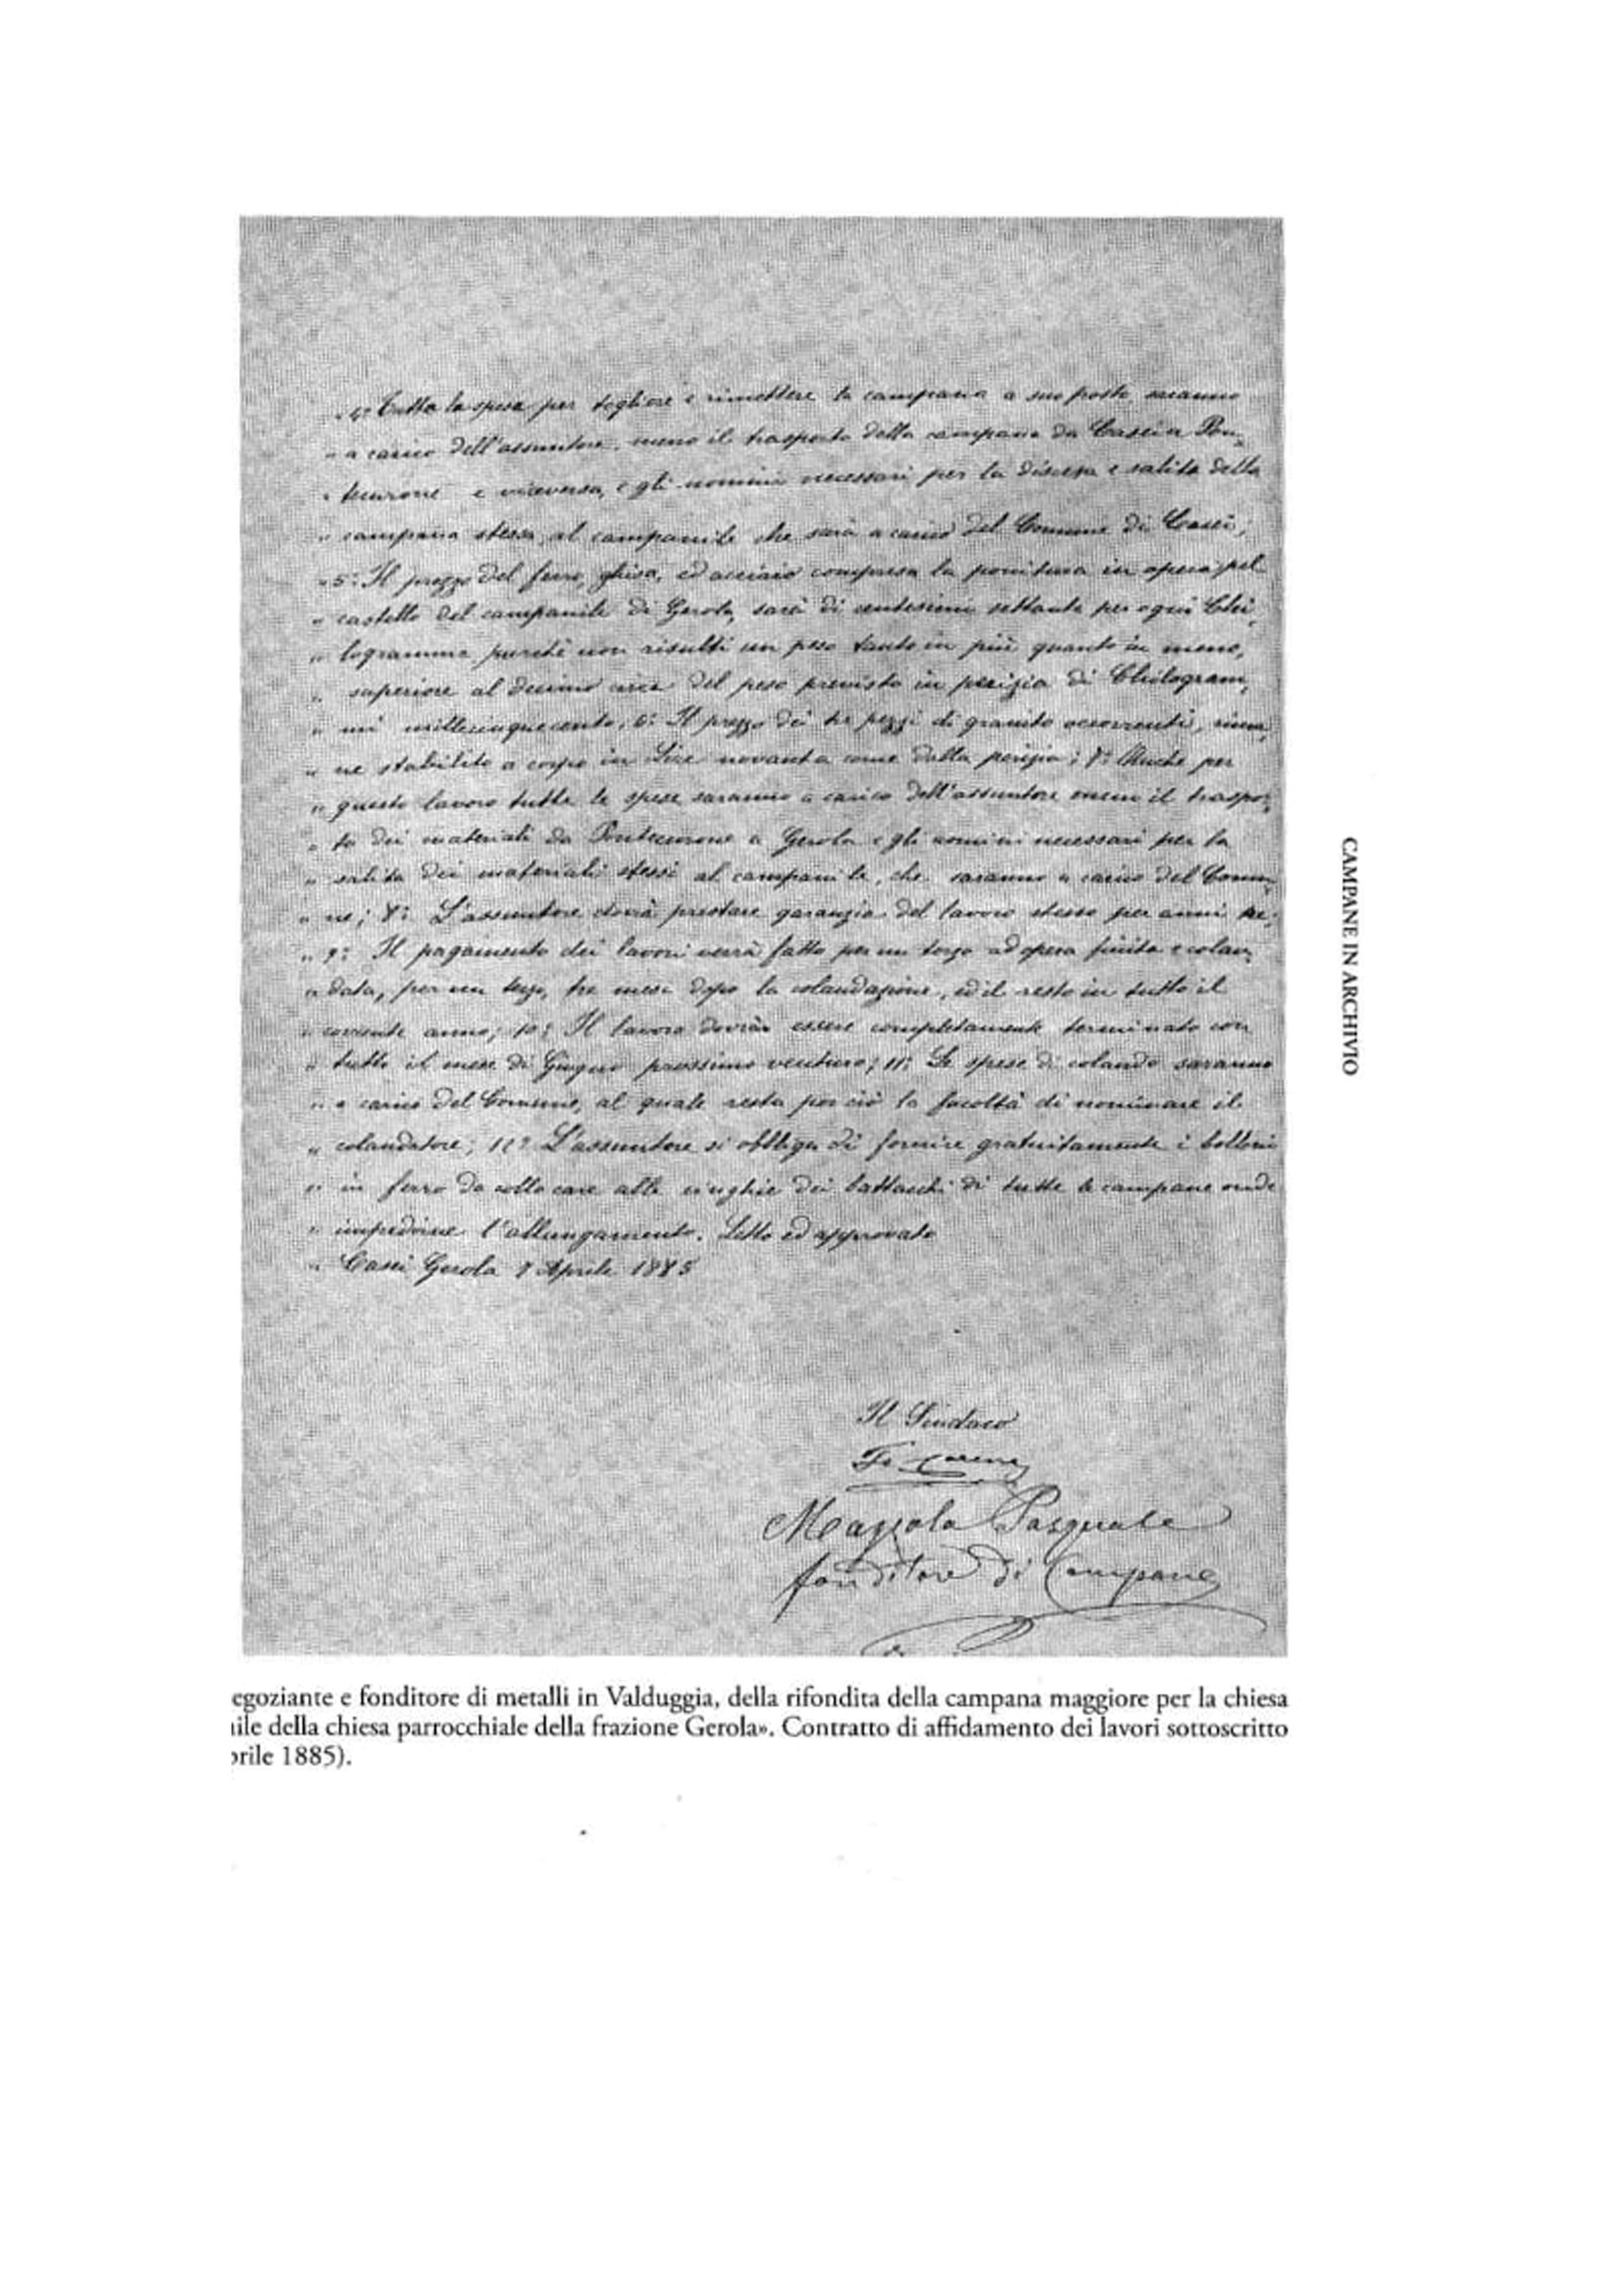 „ 4º: Tutta la spesa per togliere e rimettere la campana a suo posto, saranno
„ a carico dell'assuntore, meno il trasporto della campana da Casei a Pon„
„ tecurone e viceversa, e gli uomini necessari per la discesa e salita della
„ campana stessa al campanile che sarà a carico del Comune di Casei;
„ 5º: Il prezzo del ferro, ghisa, ed acciaio compresa la ponitura in opera pel
„ castello del campanile di Gerola, sarà di centesimi settanta per ogni Chi„
„ logramma, purchè non risulti un peso tanto in più quanto in meno,
„ superiore al decimo circa del peso previsto in perizia di Chilogram„
„ mi millecinquecento; 6º: Il prezzo dei tre pezzi di granito occorrenti, rima„
„ ne stabilito a corpo in Lire novanta come dalla perizia; 7º: Anche per
„ questo lavoro tutte le spese saranno a carico dell'assuntore meno il traspor„
„ to dei materiali da Pontecurone a Gerola e gli uomini necessari per la
„ salita dei materiali stessi al campanile, che saranno a carico del Comu„
„ ne; 8º: L'assuntore dovrà prestare garanzia del lavoro stesso per anni tre;
„ 9º: Il pagamento dei lavori verrà fatto per un terzo ad opera finita e colau„
„ data, per un terzo, tre mesi dopo la colaudazione, ed il resto in tutto il
„ corrente anno; 10º: Il lavoro dovrà essere completamente terminato con
„ tutto il mese di Giugno prossimo venturo; 11º: Le spese di colaudo saranno
„ a carico del Comune, al quale resta per ciò la facoltà di nominare il
„ colaudatore; 12º: L'assuntore si obbliga di fornire gratuitamente i bolloni
„ in ferro da collocare alle cinghie dei battacchi di tutte le campane onde
„ impedirne l'allungamento. Letto ed approvato
„ Casei Gerola 8 Aprile 1885
Il Sindaco
Mazzola Pasquale
fonditore di Campane
egoziante e fonditore di metalli in Valduggia, della rifondita della campana maggiore per la chiesa
ile della chiesa parrocchiale della frazione Gerola». Contratto di affidamento dei lavori sottoscritto
prile 1885).
CAMPANE IN ARCHIVIO